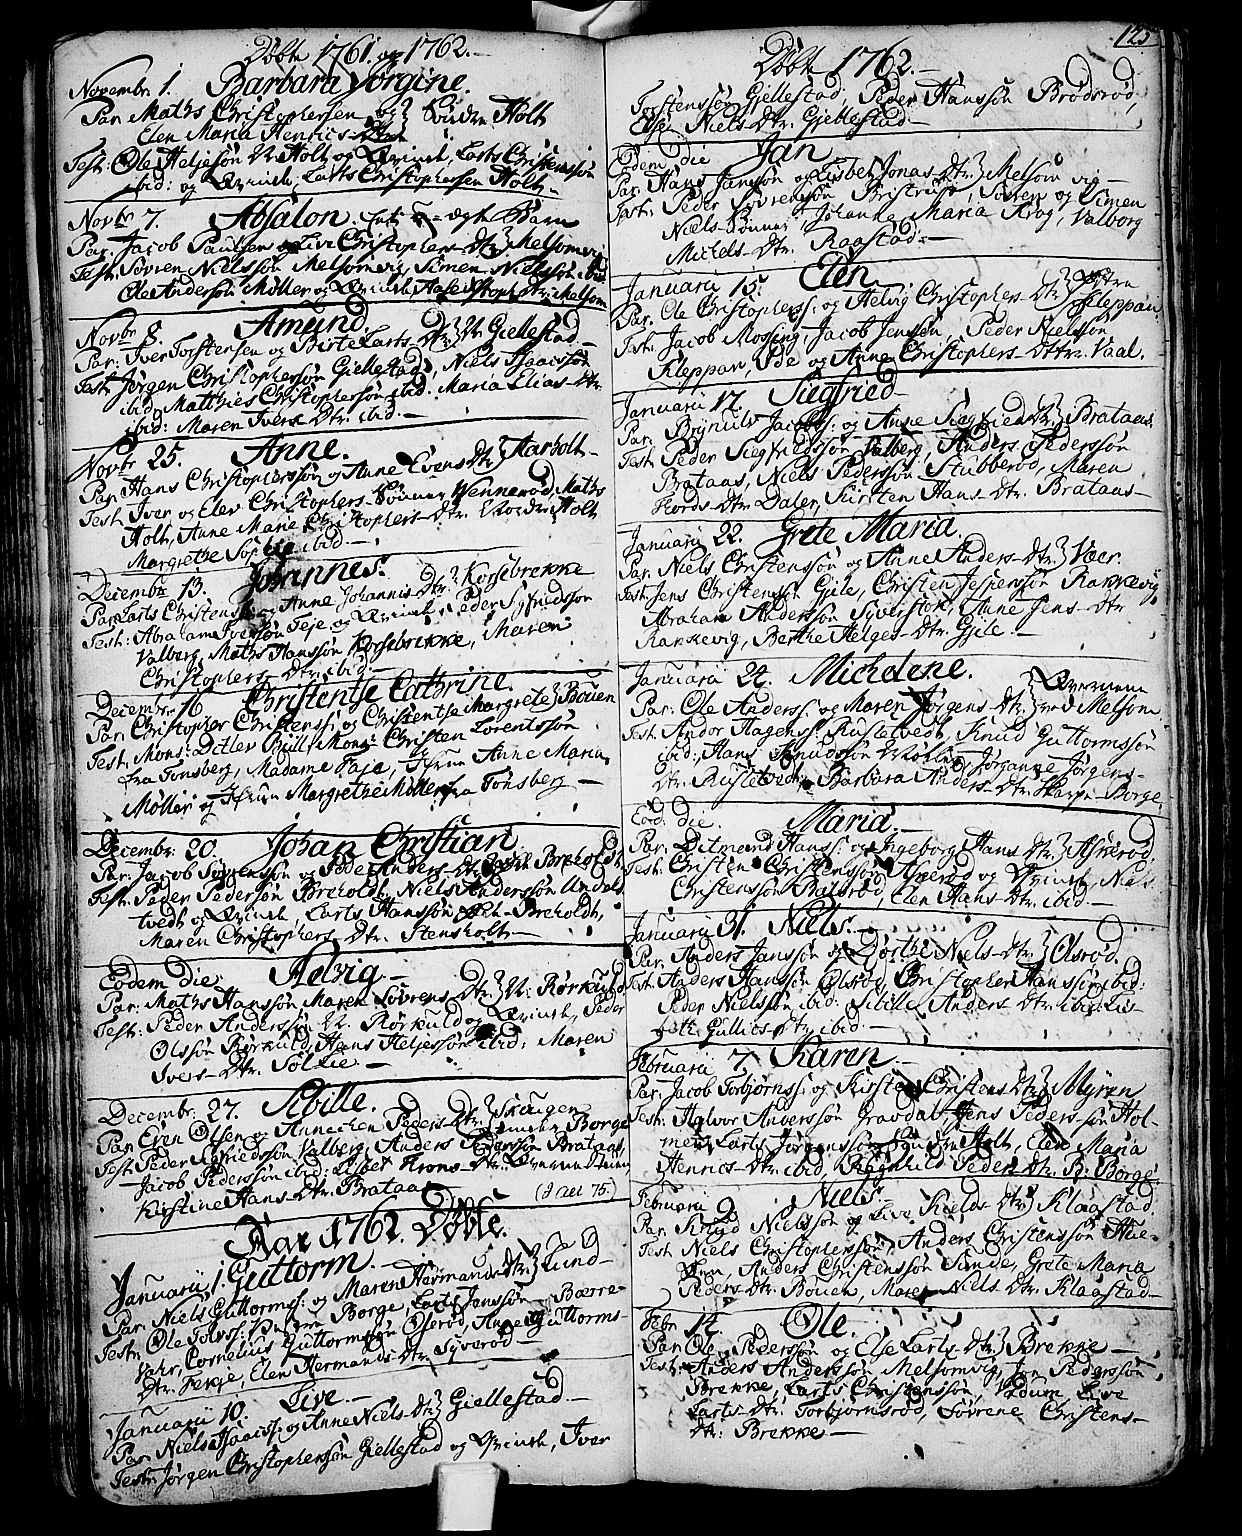 Døbte 1761. og 1762.
Novembr. 1. Barbara Jorgine.
Par. Maths Christophersen og Søndre Holt
Elen Maria Henrics-Dtr.
Test: Ole Heljesøn N. Holt og Qvinde, Larts Christenssøn
ibid: og Qvinde, Larts Christophersen Holt.
Novbr 7. Absalon. u-ægte Barn
Par. Jacob Paulsen og Live Christophers-Dtr. Melsomvig
Test: Søvren Nielssøn Melsomvig, Simen Nielssøn ibid
Ole Anderssøn Møller og Qvinde, Aase Dtr. Melsom
Novbr 8. Amund.
Par: Iver Torstensen og Birte Larts-Dtr. N. Giellestad.
Test: Jørgen Christophersøn Giellestad, Niels Isaacssøn
ibid, Matthies Christophersøn ibid. Maria Elias-Dtr
ibid: Maren Ivers Dtr. ibid.
Novbr 25. Anne.
Par. Hans Christophersøn og Anne Evens Dtr. Aarholt
Test. Iver og Elev Christophers-Sönner Wennerød, Maths
Holt, Anne Marie Christophers-Dtr. Nordre Holt
Margrethe Sophie ibid.
Decembr. 13. Johannes.
Par. Larts Christenssøn og Anne Johannis Dtr. Korsebrekke
Test: Abraham Iverssøn Feje og Qvinde, Peder Sigfridssøn
Valberg, Maths Hanssøn Korsebrekke, Maren
Christophers Dtr. ibid.
Decembr. 16 Christentse Cathrine.
Par. Christopher Christenss: og Christentse Margrete Bouen
Test. Mons: Detlev Bull, Mons: Christen Lorentssøn
fra Tonsberg, Madame Faje, Jfrun Anne Maria
Møller og Jfrun Margrethe Møller fra Tonsberg
Decembr: 20. Johan Christian
Par: Jacob Sørenssøn og Anders-Dtr. Breholdt
Test: Peder Pedersøn Breholdt, Niels Anderssøn Undals
tvedt og Qvinde, Larts Hanssøn Breholdt,
Maren Christophers Dtr. Stensholt
Eodem die. Helvig
Par: Maths Hanssøn Maren Søvrens Dtr. N. Rørkuld
Test: Peder Anderssøn N. Rørkuld og Qvinde, Peder
Olssøn Rørkuld, Hans Heljessøn ibid: Maren
Ivers-Dtr. Sollie
Decembr. 27. Sibille.
Par. Even Olsen og Annechen Peders-Dtr. Skougen under Borge
Test. Peder Valberg, Anders Pederssøn Brataas
Jacob Pedersøn ibid: Lisbet Dtr.
Kirstine Hans-Dtr. Brataas (I alt 75.)
Aar 1762. Døbte.
Januarii 1. Guttorm.
Par. Niels Guttormss: og Maren Hermands Dtr. Lund
Test: Ole Borge, Larts Janssøn Børre-
Vahr, Cornelius Guttormssøn Oserød, Anne Guttorms-
Dtr. Fekje, Elen Hermands Dtr. Syverød
Januarii 10. Live
Par. Niels Isaacss: og Anne Niels-Dtr. Giellestad
Test. Jørgen Christophersøn Giellestad og Qvinde, Iver
125
Døbte 1762.
Torstenssøn Gjellestad, Peder Hanssøn Brødsrød,
Else Niels-Dtr. Gjellestad.
Eodem die Jan
Par: Hans Janssøn og Lisbet Jonas Dtr. Melsom vig
Test: Peder Søvrenssøn Bristrup, Søvren og Simen
Niels-Sønner, Johanne Maria Krog, Valborg
Michels-Dtr. Raastad
Januarii 15. Elen
Par. Ole Christopherss: og Helvig Christophers-Dtr. Kleppan
Test. Jacob Mossing, Jacob Jenssøn, Peder Nielssøn
Kleppan, Ide og Anne Christophers-Dttr. Vaal.
Januarii 17. Siegfried
Par. Brynuls Jacobss: og Anne Siegfrieds Dtr. Brataas
Test. Peder Siegfriedssøn Valberg, Anders Pederssøn
Brataas, Niels Pederssøn Stubberød, Maren
Fords Dtr. Dalen, Kirsten Hans-Dtr. Brataas
Januarii 22. Grete Maria.
Par. Niels Christenssøn og Anne Anders-Dtr. Vær.
Test. Jens Christensøn Gile, Christen Jespersøn Rakkevig
Abraham Anderssøn Syverstek, Anne Jens-Dtr
Rakkevig, Berthe Helges-Dtr. Gjile.
Januarii 24. Michelene. Qvernene
Par. Ole Anderss: og Maren Jørgens Dtr. ved Melsom.
Test. Andor Hagenss: Rustetvedt, Knud Guttormssøn
ibid., Hans Knudssøn Jørganne Jørgens-
Dtr. Rustetvedt, Barbara Anders-Dtr. Skarpe-Borge
Eod: die. Maria.
Par: Ditmand Hanss: og Ingeborg Hans Dtr. Askerød.
Test: Christen Christenssøn Askerød og Qvinde, Niels
Christenssøn, Elen Hans-Dtr. ibid.
Januarii 31. Niels.
Par. Anders Janssøn og Dorthe Niels-Dtr. Olsrød.
Test. Anders Hanssøn Olsrød, Christopher Hanssøn ibid:
Peder Nielssøn ibid: Sibille Anders Dtr. ibid: Lis-
beth Gullics-Dtr. ibid.
Februarii 7. Karen
Par. Jacob Torbjørnss: og Kirsten Christens Dtr. Myren
Test: Halvor Anderssøn Gravdal, Jens Pederssøn Hol-
men, Larts Jørgenssøn Søndre Holt, Elen Maria
Henrics-Dtr. ibid, Ragnhild Peders Dtr. Sk: Borge
Februarii 9. Niels.
Par. Knud Nielssøn og Live Kields Dtr. Klaastad.
Test. Niels Christopherssøn, Anders Christenssøn Hae-
sken, Anders Christenssøn Sunde, Grete Maria
Peders-Dtr. Bouen, Maren Niels Dtr. Klaastad
Febr. 14. Ole.
Par. Ole Pederssøn og Else Larts-Dtr. Brekke
Test: Anders Anderssøn Melsomvig, Jon Pederssøn
Brekke, Larts Christenssøn, Vidum, Live
Larts-Dtr. Torbjornsrød, Søvrene Christens-
Dtr: Brekke